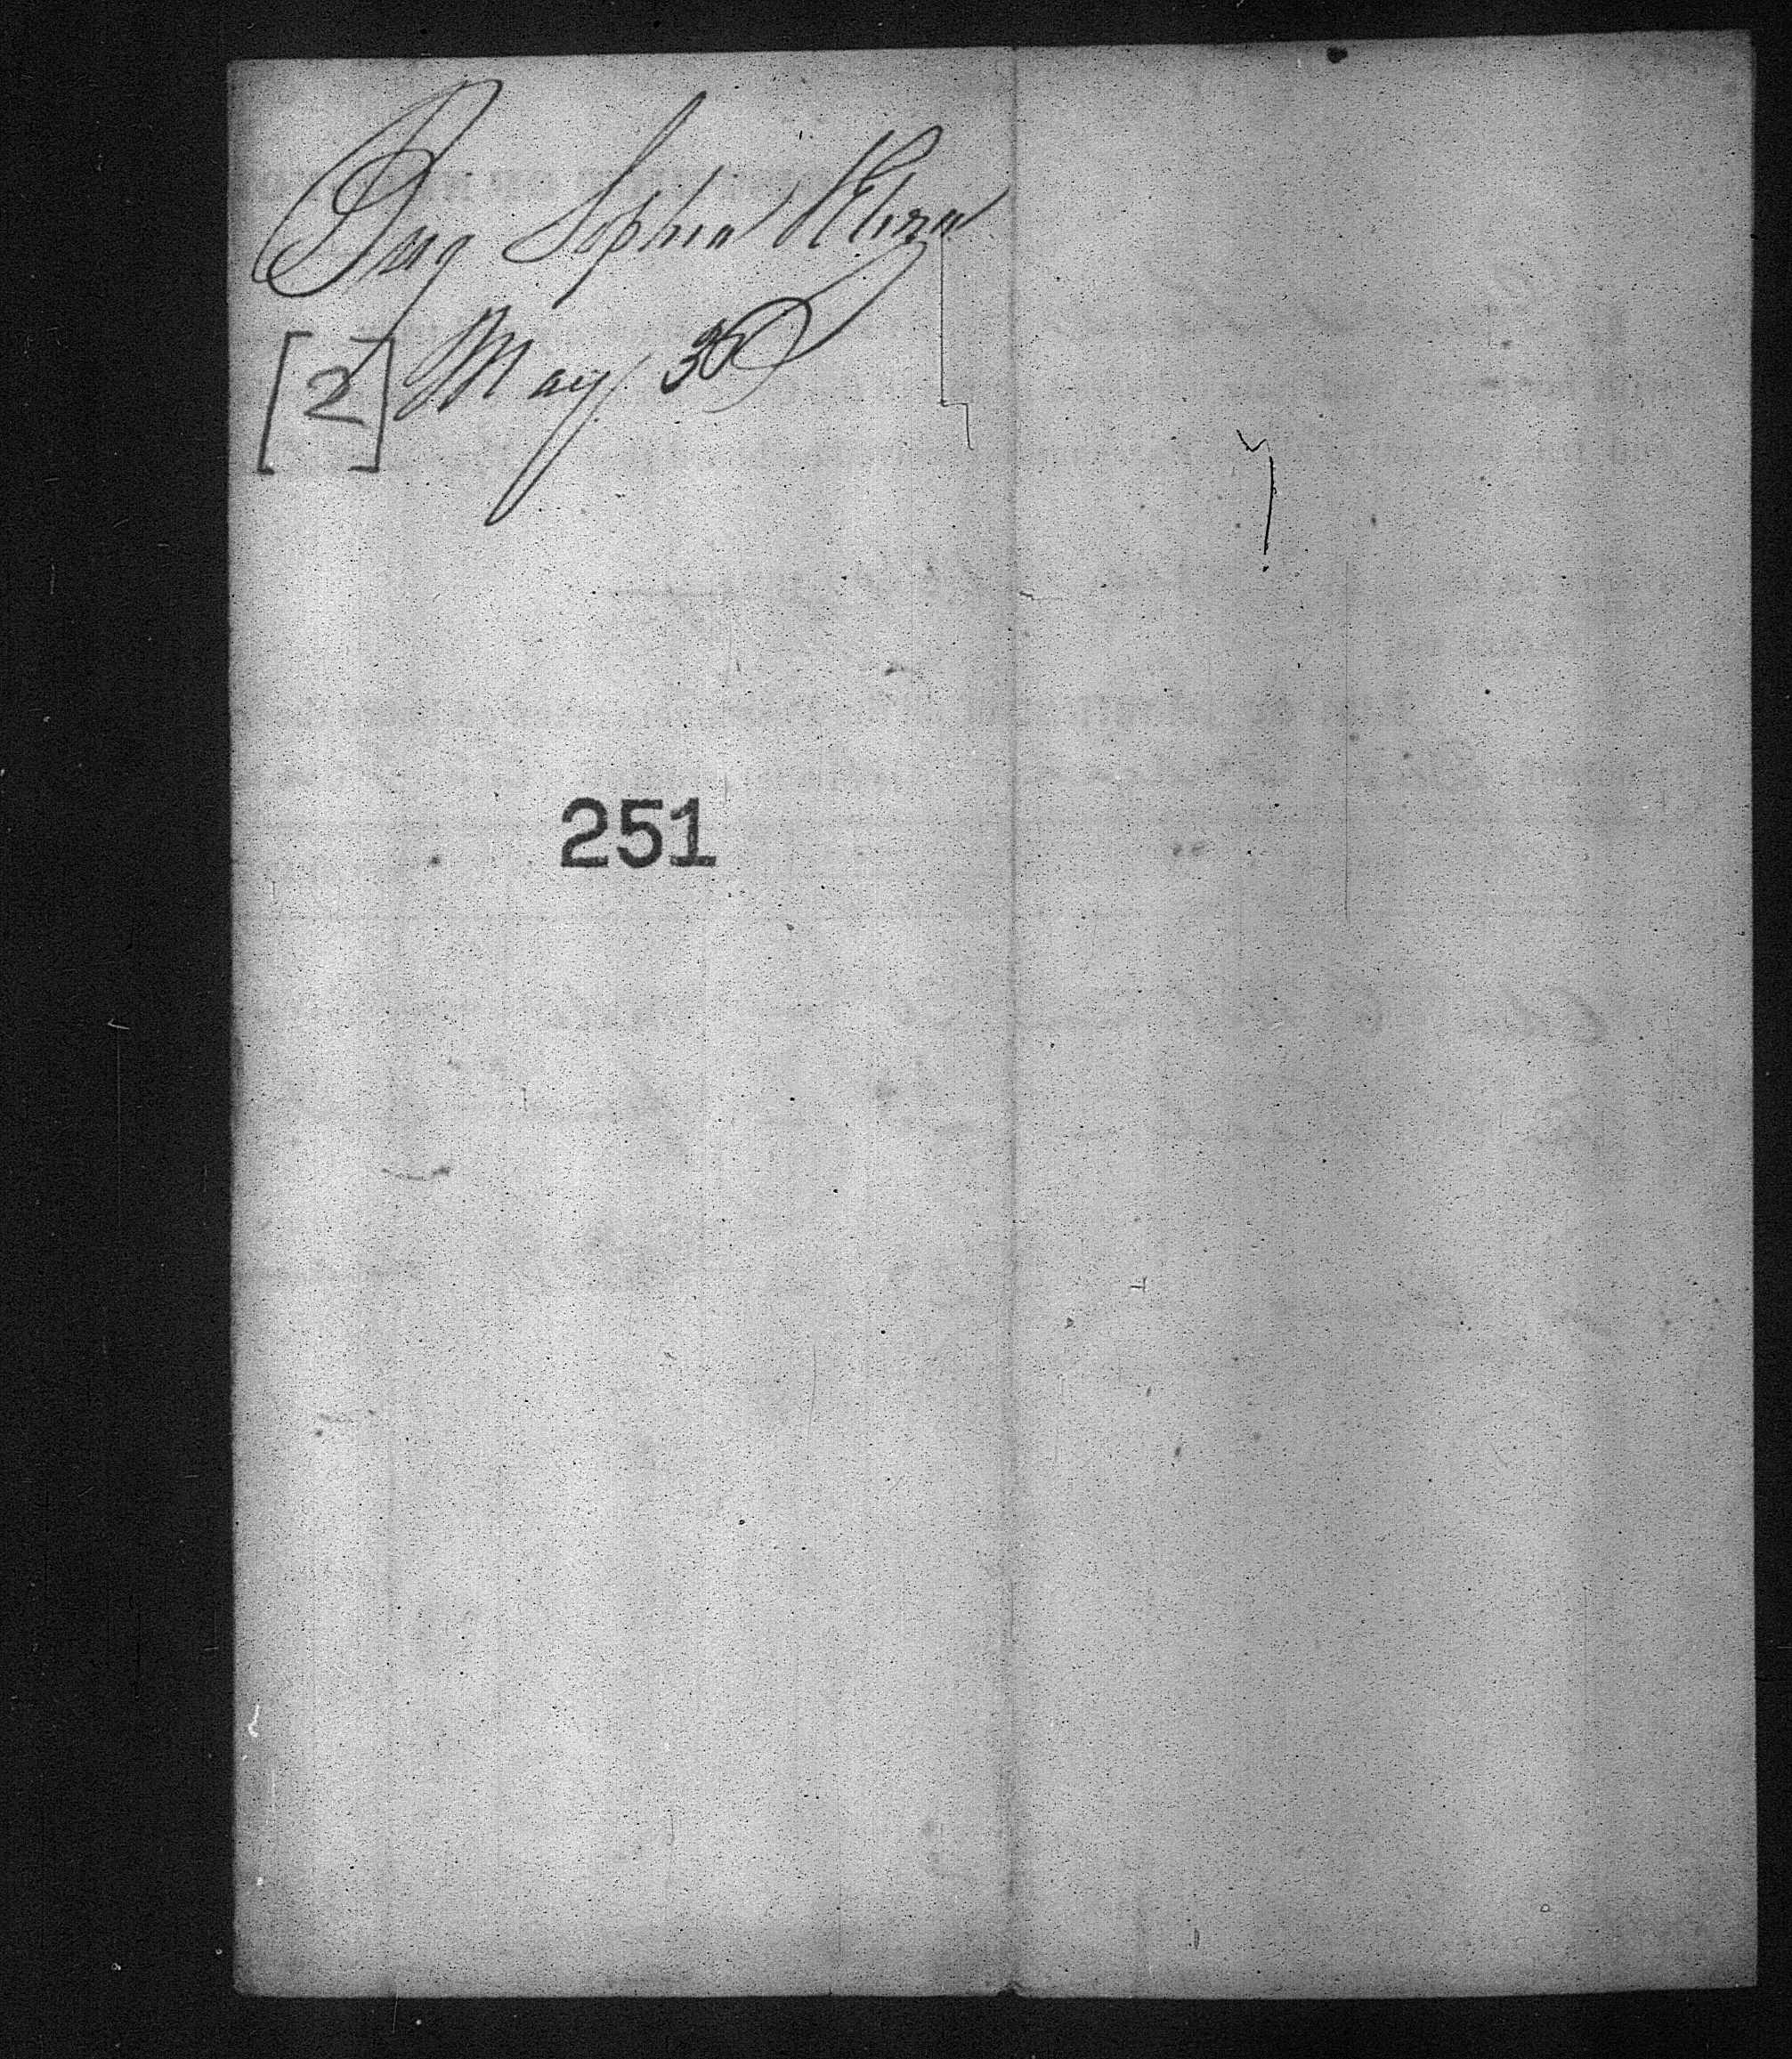 Brig Sophia Eliza
[2] May 30
251